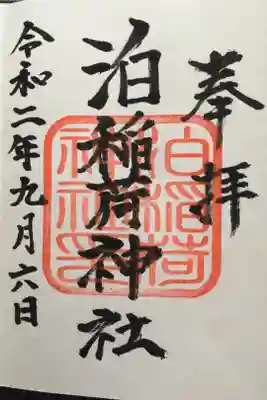 奉拝
泊稲荷神社
泊稲荷
神社印
令和二年九月六日